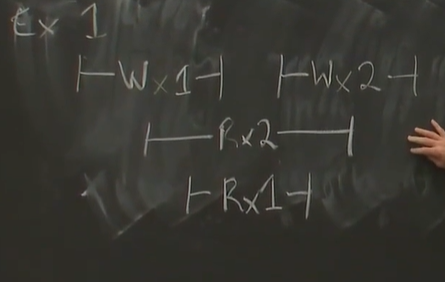 Ex 1
|-Wx1-| |-Wx2-|
|---Rx2---|
|-Rx1-|